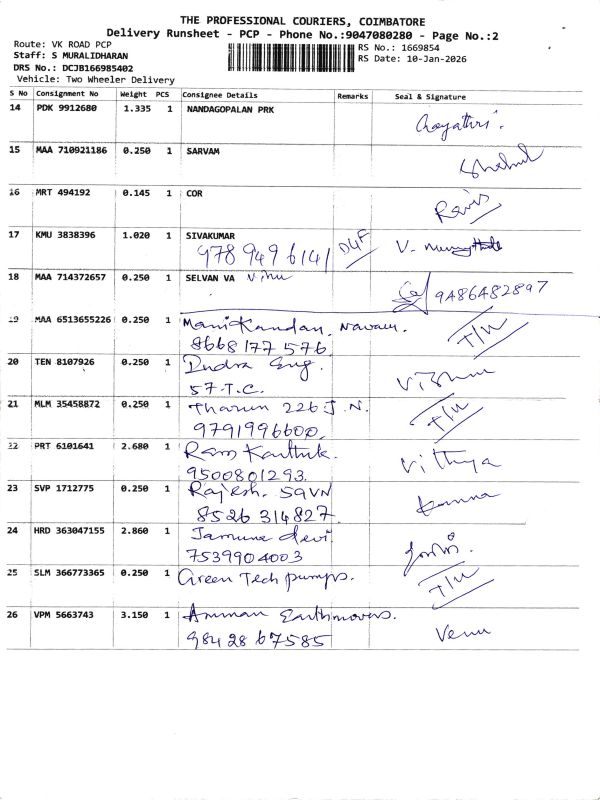 THE PROFESSIONAL COURIERS, COIMBATORE
Delivery Runsheet - PCP - Phone No.:9047080280 - Page No.:2
Route: VK ROAD PCP
Staff: S MURALIDHARAN
DRS No.: DCJB166985402
Vehicle: Two Wheeler Delivery
RS No.: 1669854
RS Date: 10-Jan-2026
S No Consignment No Weight PCS Consignee Details Remarks Seal & Signature
14 PDK 9912680 1.335 1 NANDAGOPALAN PRK Gayathri.
15 MAA 710921186 0.250 1 SARVAM
16 MRT 494192 0.145 1 COR
17 KMU 3838396 1.020 1 SIVAKUMAR
978 949 6141 V.
18 MAA 714372657 0.250 1 SELVAN VA Vinu
9486482897
19 MAA 6513655226 0.250 1 Manikandan, Navavu.
8668 177 576 T/W
20 TEN 8107926 0.250 1 Indra Eng.
57-T.C. Vishnu
21 MLM 35458872 0.250 1 Tharun 226-J.N.
9791996600, T/W
22 PRT 6101641 2.680 1 Ram Karthik.
9500801293. Vithya
23 SVP 1712775 0.250 1 Rajesh. 59VN
8526 314827. Kanna
24 HRD 363047155 2.860 1 Jamuna devi
7539904003
25 SLM 366773365 0.250 1 Green Tech pumps. T/W
26 VPM 5663743 3.150 1 Amman Earthmovers.
98428 67585 Venu